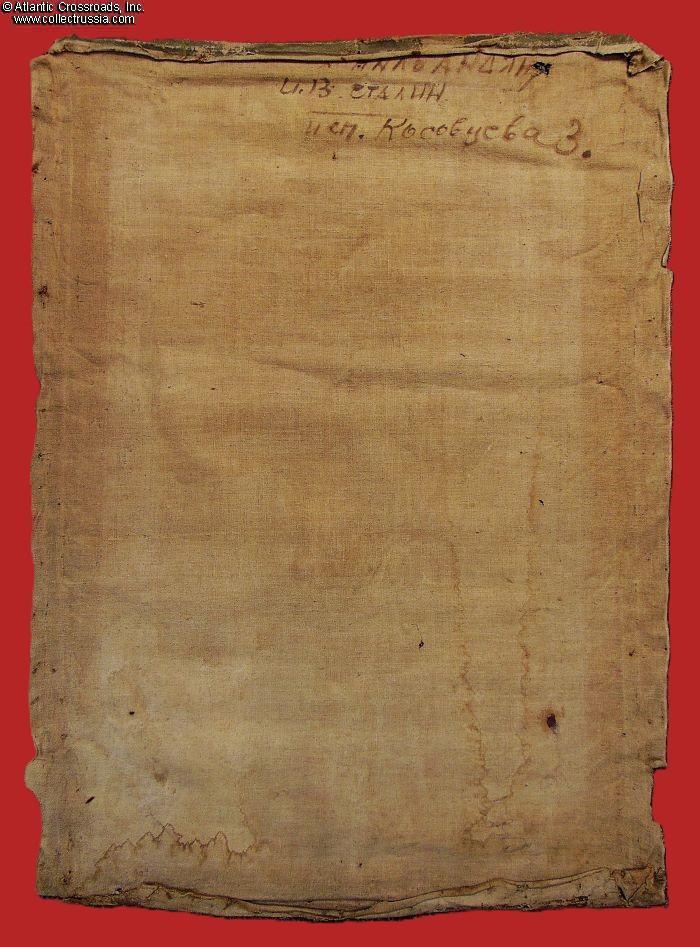 © Atlantic Crossroads, Inc.
www.collectrussia.com
НАЛБАНДЯН
И.В. СТАЛИН
исп. Косовцева З.